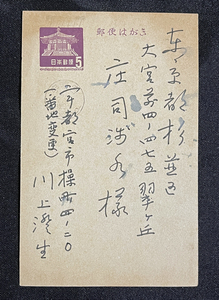 郵便はがき
日本郵便
5
東京都杉並区
大宮前四ノ四七五 翠ヶ丘
庄司浅水様
宇都宮市操町四ノ二〇
(番地変更)
川上澄生